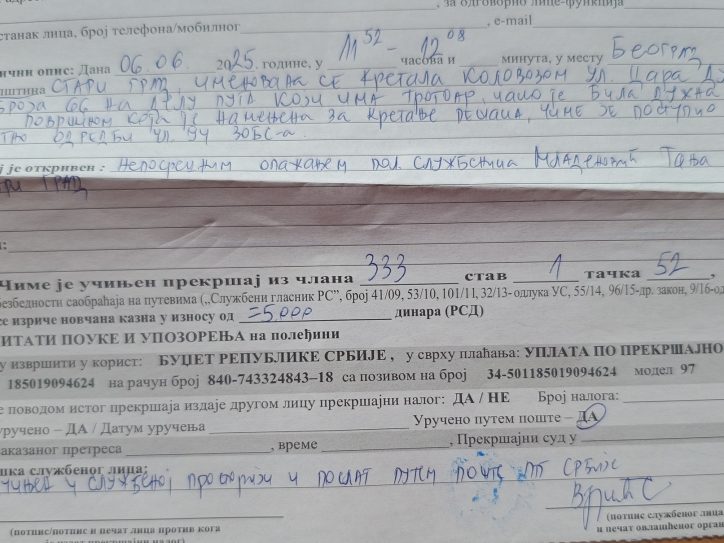 за одговорно лице-функција
станак лица, број телефона/мобилног , e-mail
ични опис: Дана 06.06. 2025. године, у 11 52 - 12 08 часова и минута, у месту Београд
пштина СТАРИ ГРАД, ИМЕНОВАНА СЕ КРЕТАЛА КОЛОВОЗОМ УЛ. Цара
66 НА ДЕЛУ ПУТА КОЈИ ИМА ТРОТОАР, БИЛА ДУЖНА
ПОВРШИНОМ КОЈА ЈЕ НАМЕЊЕНА ЗА КРЕТАЊЕ ПЕШАКА, ЧИМЕ ЈЕ ПОСТУПИО
ОД ЗОБС-а.
ј је откривен : Непосредним опажањем пол. СЛУЖБЕНИЦА МЛАДЕНОВИЋ Тања
ГРАД
Чиме је учињен прекршај из члана 333 став 1 тачка 52 ,
безбедности саобраћаја на путевима („Службени гласник РС”, број 41/09, 53/10, 101/11, 32/13- одлука УС, 55/14, 96/15-др. закон, 9/16-од
се изриче новчана казна у износу од =5.000 динара (РСД)
ИТАТИ ПОУКЕ И УПОЗОРЕЊА на полеђини
у извршити у корист: БУЏЕТ РЕПУБЛИКЕ СРБИЈЕ , у сврху плаћања: УПЛАТА ПО ПРЕКРШАЈНО
185019094624 на рачун број 840-743324843–18 са позивом на број 34-501185019094624 модел 97
е поводом истог прекршаја издаје другом лицу прекршајни налог: ДА / НЕ Број налога:
уручено – ДА / Датум уручења Уручено путем поште – ДА
аказаног претреса , време , Прекршајни суд у
шка службеног лица:
У СЛУЖБЕНОЈ ПРОСТОРИЈИ И ПОСЛАТ ПУТЕМ ПОШТЕ СРБИЈЕ
(потпис/потпис и печат лица против кога
(потпис службеног лица
и печат овлашћеног орган
је издат прекршајни налог)